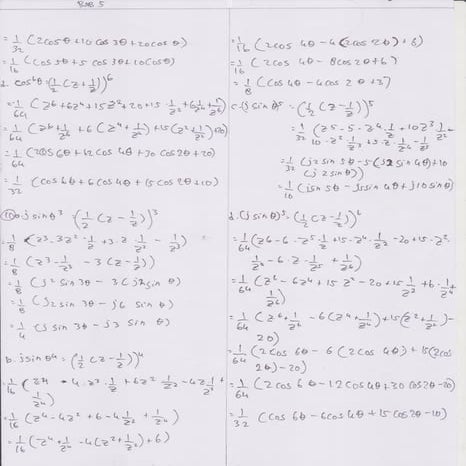 BAB 5
= 1/32 (2cos 5θ + 10 cos 3θ + 20cos θ)
= 1/16 (cos 5θ + 5 cos 3θ + 10cos θ)
d. cos⁶θ = (1/2 (z + 1/z))⁶
= 1/64 (z⁶ + 6z⁴ + 15z² + 20 + 15 · 1/z² + 6 1/z⁴ + 1/z⁶)
= 1/64 (z⁶ + 1/z⁶ + 6 (z⁴ + 1/z⁴) + 15 (z² + 1/z²) + 20)
= 1/64 (2cos 6θ + 12 cos 4θ + 30 cos 2θ + 20)
= 1/32 (cos 6θ + 6 cos 4θ + 15 cos 2θ + 10)
a. j sin θ³ = (1/2 (z − 1/z))³
= 1/8 (z³ − 3z² · 1/z + 3 · z · 1/z² − 1/z³)
= 1/8 (z³ − 1/z³ − 3 (z − 1/z))
= 1/8 (j² sin 3θ − 3 (j2 sin θ)
= 1/8 (j2 sin 3θ − j6 sin θ)
= 1/4 (j sin 3θ − j3 sin θ)
b. j sin θ⁴ = (1/2 (z − 1/z))⁴
= 1/16 (z⁴ − 4 · z³ · 1/z + 6z² · 1/z² − 4z 1/z³ +
1/z⁴)
= 1/16 (z⁴ − 4z² + 6 − 4 1/z² + 1/z⁴)
= 1/16 (z⁴ + 1/z⁴ − 4 (z² + 1/z²) + 6)
= 1/16 (2cos 4θ − 4 (2cos 2θ) + 6)
= 1/16 (2cos 4θ − 8cos 2θ + 6)
= 1/8 (cos 4θ − 4cos 2θ + 3)
c. (j sin θ)⁵ = (1/2 (z − 1/z))⁵
= 1/32 (z⁵ − 5 · z⁴ · 1/z + 10z³ 1/z² −
10 · z² · 1/z³ + 5 · z · 1/z⁴ − 1/z⁵)
= 1/32 (j2 sin 5θ − 5 (j2 sin 4θ) + 10
(j 2 sin θ))
= 1/16 (j sin 5θ − j5 sin 4θ + j10 sin θ)
d. (j sin θ)⁶ = (1/2 (z − 1/z))⁶
= 1/64 (z⁶ − 6 · z⁵ · 1/z + 15 · z⁴ · 1/z² − 20 + 15 · z² ·
1/z⁴ − 6 · z · 1/z⁵ + 1/z⁶)
= 1/64 (z⁶ − 6z⁴ + 15 z² − 20 + 15 1/z² + 6 · 1/z⁴ +
1/z⁶)
= 1/64 (z⁶ + 1/z⁶ − 6 (z⁴ + 1/z⁴) + 15 (z² + 1/z²) −
20)
= 1/64 (2cos 6θ − 6 (2cos 4θ) + 15 (2cos
2θ) − 20)
= 1/64 (2cos 6θ − 12cos 4θ + 30 cos 2θ − 20)
= 1/32 (cos 6θ − 6cos 4θ + 15 cos 2θ − 10)